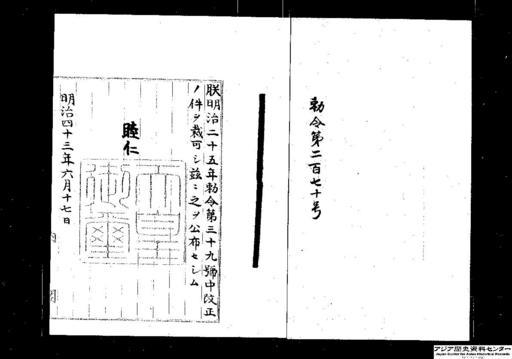 勅令第二百七十号
朕明治二十五年勅令第三十九號中改正
ノ件ヲ裁可シ茲ニ之ヲ公布セシム
睦仁
天皇御璽
明治四十三年六月十七日
内閣
アジア歴史資料センター
Japan Center for Asian Historical Records